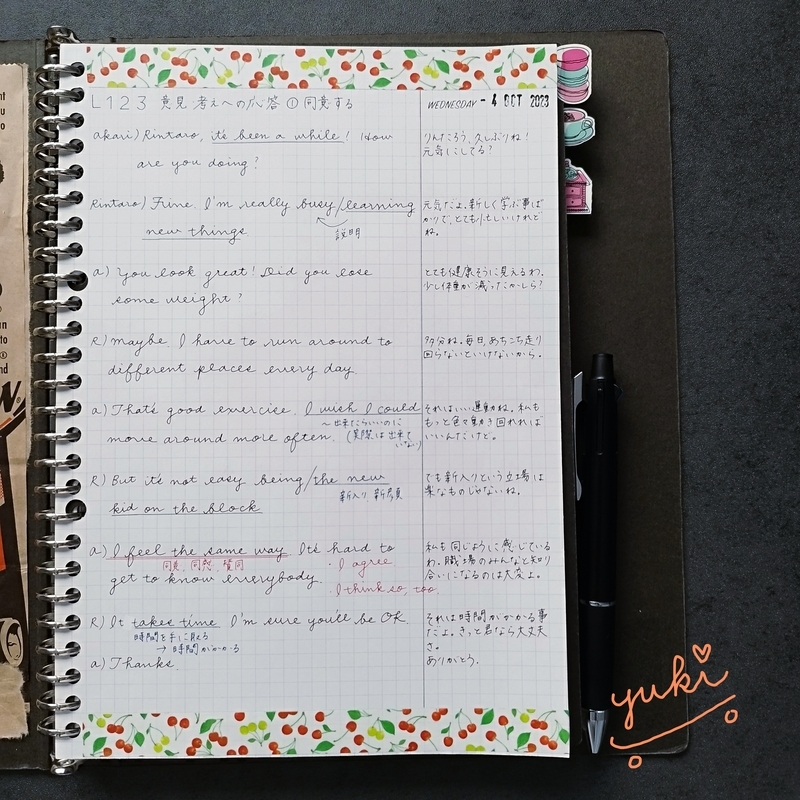 L123 意見 考えへの応答 ① 同意する
WEDNESDAY - 4 OCT 2023
akari) Rintaro, it's been a while! How
are you doing?
りんたろう、久しぶりね!
元気にしてる?
Rintaro) Fine. I'm really busy/learning
new things
説明
元気だよ。新しく学ぶ事ば
かりで、とても忙しいけれど
ね。
a) You look great! Did you lose
some weight?
とても健康そうに見えるわ。
少し体重が減ったかしら?
R) maybe. I have to run around to
different places every day.
多分ね。毎日、あちこち走り
回らないといけないから。
a) That's good exercise. I wish I could
〜出来たらいいのに
move around more often. (実際は出来て
いない)
それはいい運動ね。私も
もっと色々動き回れれば
いいんだけど。
R) But it's not easy being/the new
新入り、新顔
kid on the block
でも新入りという立場は
楽なものじゃないね。
a) I feel the same way. It's hard to
同意、同感、賛同
・I agree.
get to know everybody.
・I think so, too.
私も同じように感じている
わ。職場のみんなと知り
合いになるのは大変よ。
R) It takes time. I'm sure you'll be OK.
時間を手に取る
→ 時間がかかる
それは時間がかかる事
だよ。きっと君なら大丈夫
さ。
a) Thanks.
ありがとう。
yuki